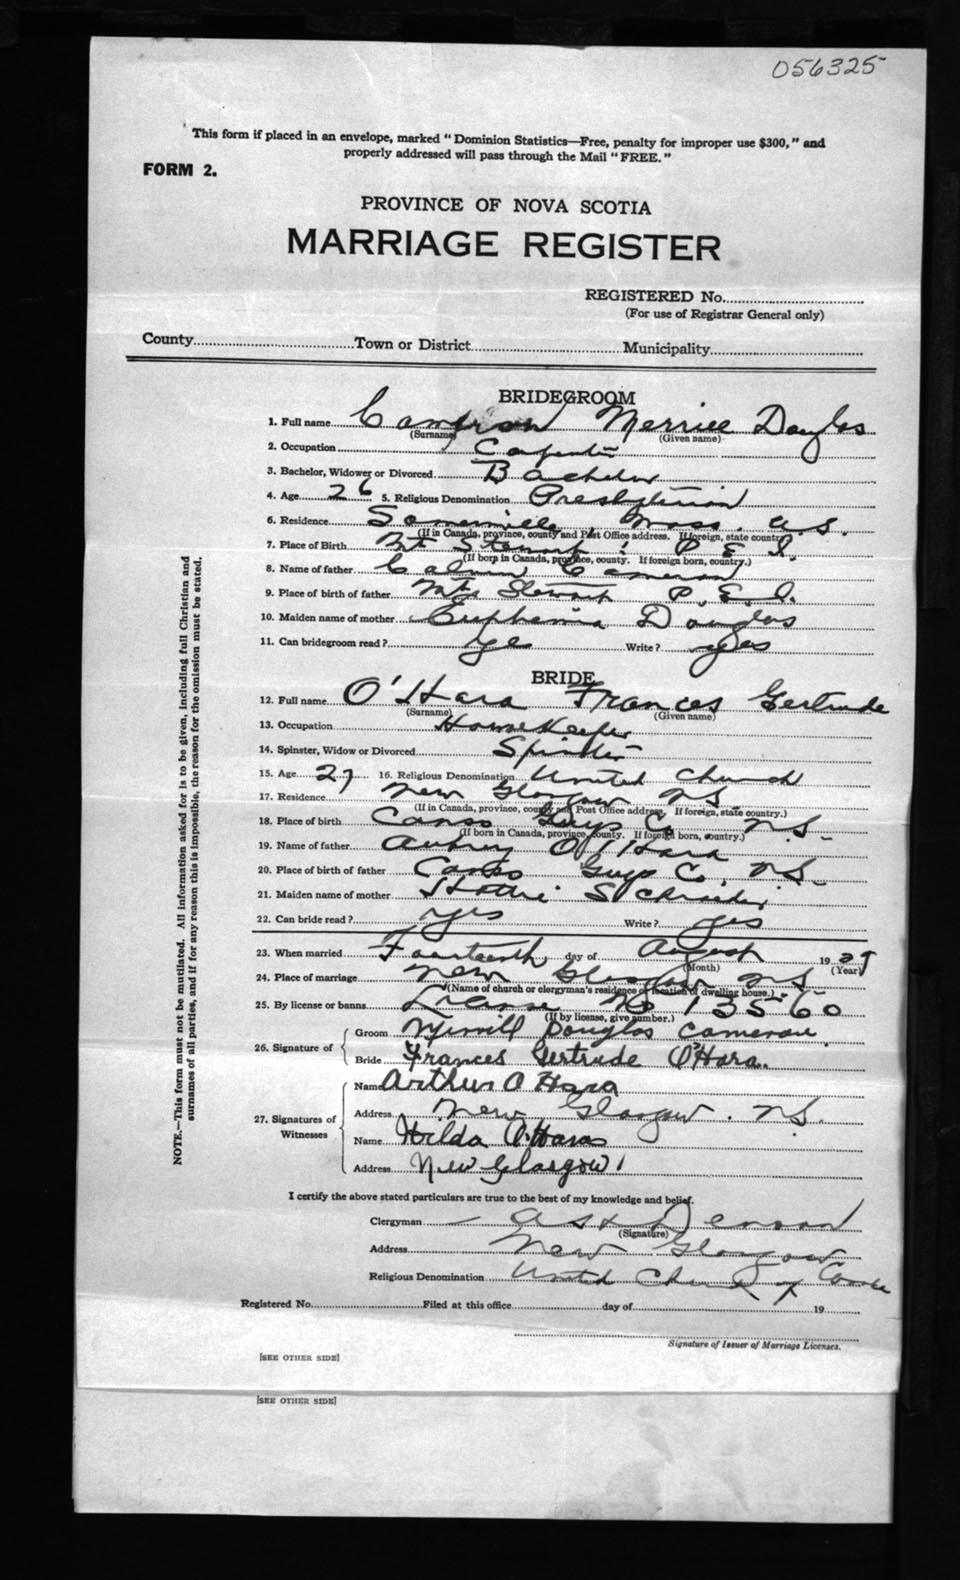 056325
This form if placed in an envelope, marked "Dominion Statistics—Free, penalty for improper use $300," and
properly addressed will pass through the Mail "FREE."
FORM 2.
PROVINCE OF NOVA SCOTIA
MARRIAGE REGISTER
REGISTERED No.
(For use of Registrar General only)
County Town or District Municipality
BRIDEGROOM
1. Full name Cameron Merrill Douglas
(Surname) (Given name)
2. Occupation Carpenter
3. Bachelor, Widower or Divorced Bachelor
4. Age 26 5. Religious Denomination Presbyterian
6. Residence Somerville, Mass. U.S.
(If in Canada, province, county and Post Office address. If foreign, state country.)
7. Place of Birth Mt Stewart P.E.I.
(If born in Canada, province, county. If foreign born, country.)
8. Name of father Calvin Cameron
9. Place of birth of father Mt Stewart P.E.I.
10. Maiden name of mother Euphemia Douglas
11. Can bridegroom read? yes Write? yes
BRIDE
12. Full name O'Hara Frances Gertrude
(Surname) (Given name)
13. Occupation Housekeeper
14. Spinster, Widow or Divorced Spinster
15. Age 27 16. Religious Denomination United Church
17. Residence New Glasgow N.S.
(If in Canada, province, county and Post Office address. If foreign, state country.)
18. Place of birth Canso Guys Co. N.S.
(If born in Canada, province, county. If foreign born, country.)
19. Name of father Aubrey O'Hara
20. Place of birth of father Canso Guys Co. N.S.
21. Maiden name of mother Hattie
22. Can bride read? yes Write? yes
23. When married Fourteenth day of August 19 29
(Month) (Year)
24. Place of marriage New Glasgow N.S.
(Name of church or clergyman's residence or location of dwelling house.)
25. By license or banns License No 13560
(If by license, give number.)
26. Signature of
Groom Merrill Douglas Cameron.
Bride Frances Gertrude O'Hara.
27. Signatures of Witnesses
Name Arthur O'Hara
Address New Glasgow. N.S.
Name Hilda O'Hara
Address New Glasgow
I certify the above stated particulars are true to the best of my knowledge and belief.
Clergyman
(Signature)
Address New Glasgow
Religious Denomination United Church of
Registered No. Filed at this office day of 19
Signature of Issuer of Marriage Licenses.
[SEE OTHER SIDE]
[SEE OTHER SIDE]
NOTE.—This form must not be mutilated. All information asked for is to be given, including full Christian and
surnames of all parties, and if for any reason this is impossible, the reason for the omission must be stated.